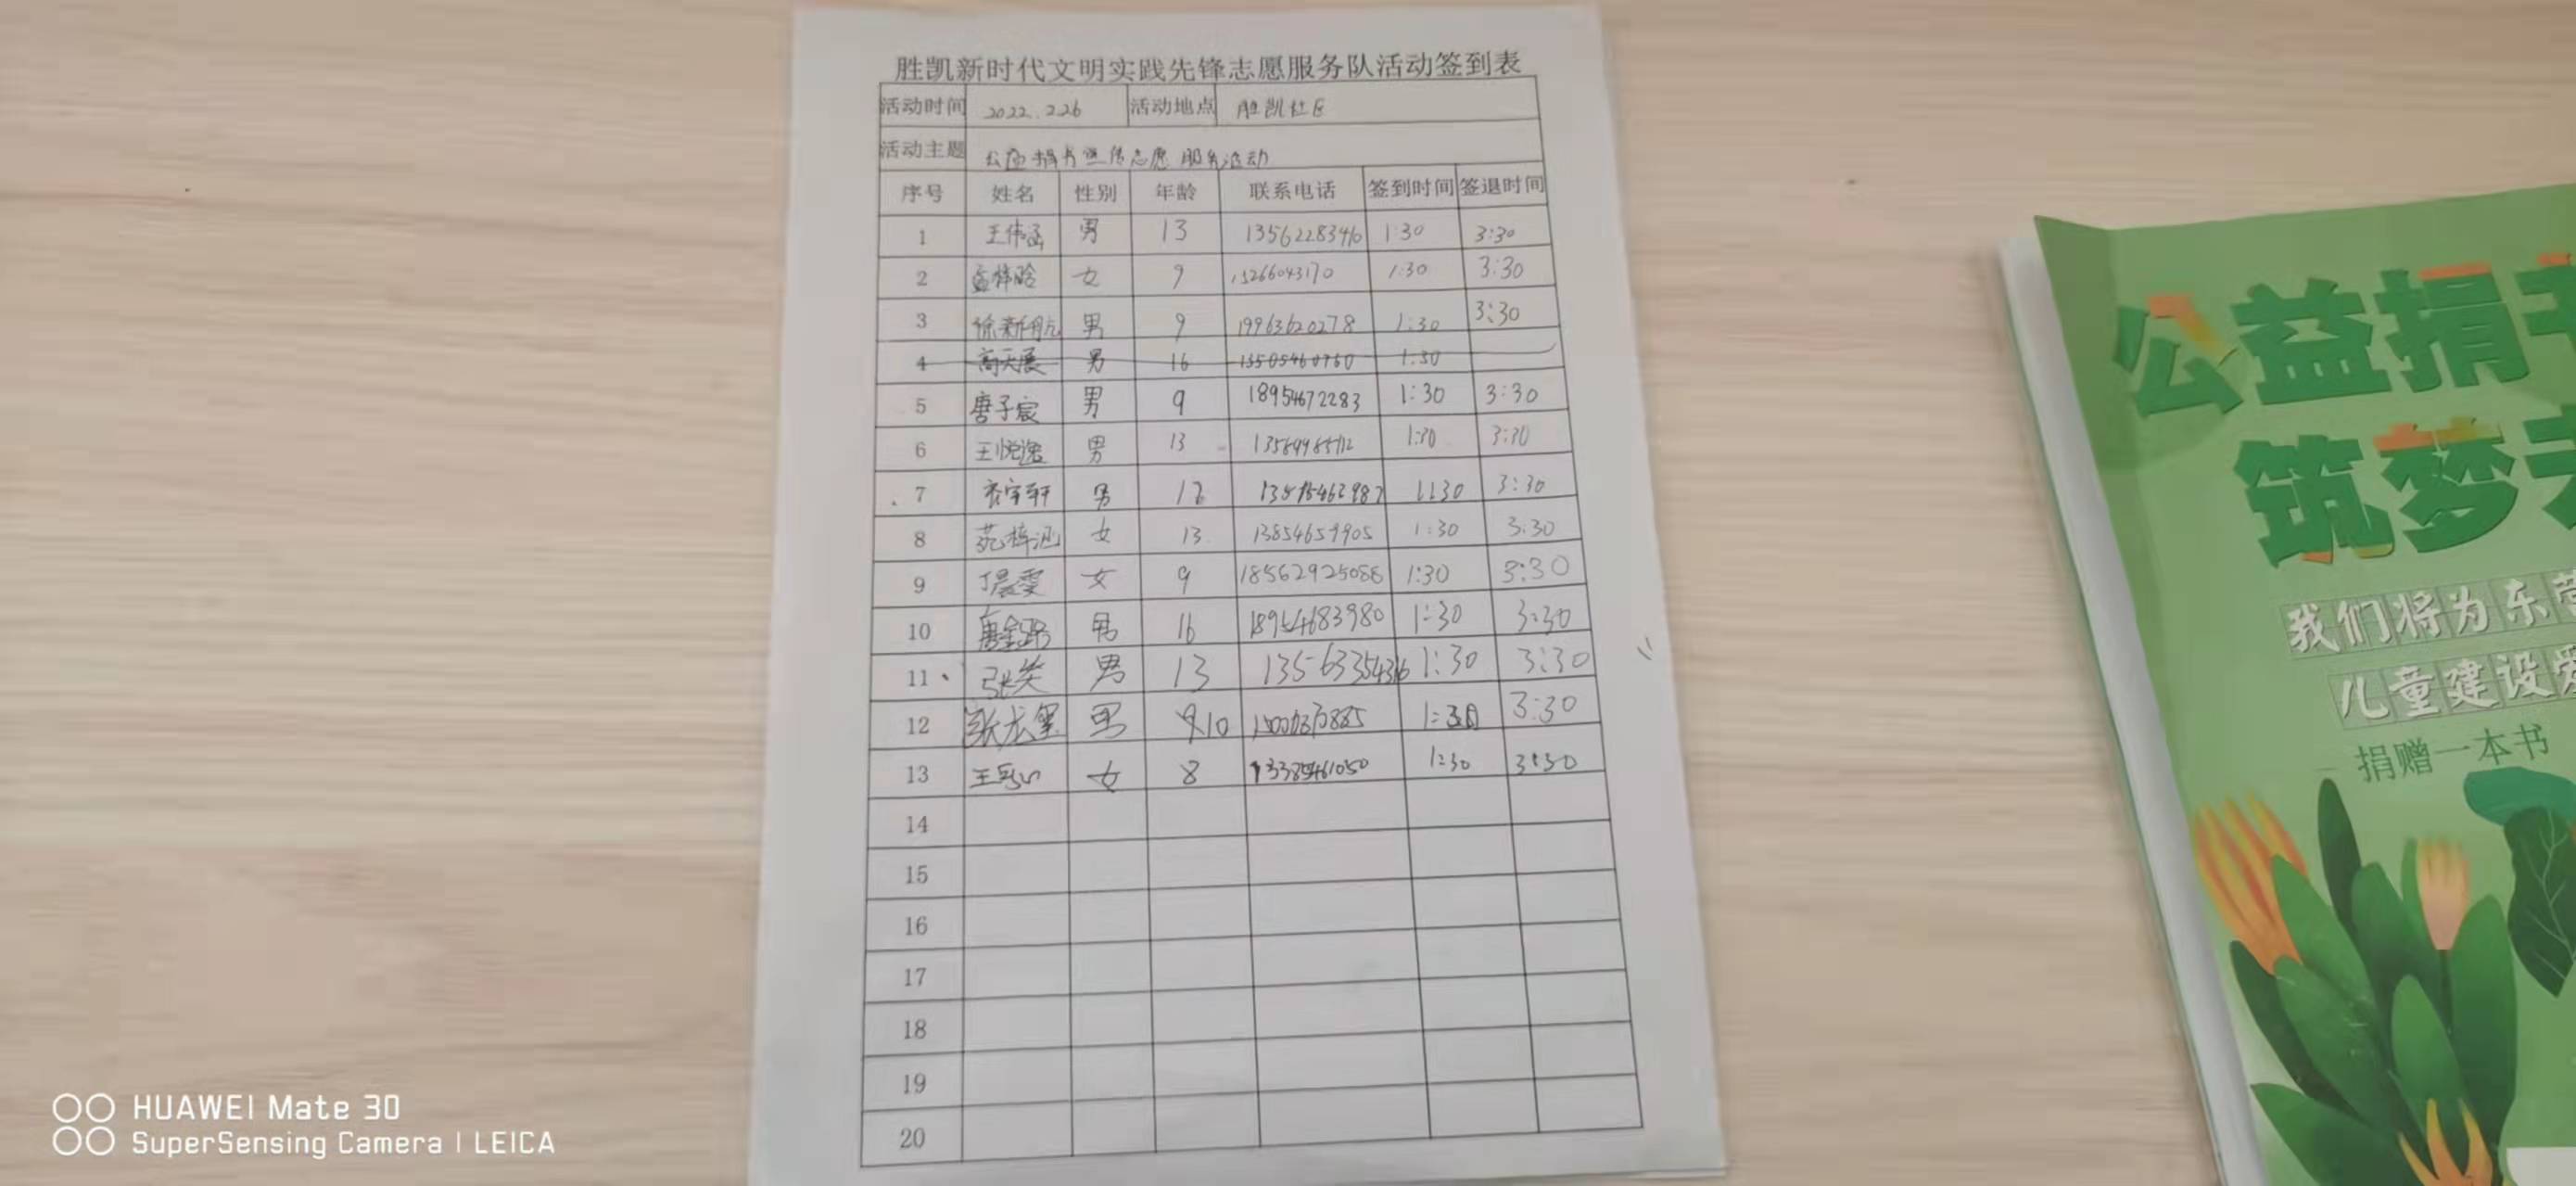 胜凯新时代文明实践先锋志愿服务队活动签到表
活动时间 2022.2.26 活动地点 胜凯社区
活动主题 公益捐书宣传志愿服务活动
序号 姓名 性别 年龄 联系电话 签到时间 签退时间
1 王伟涵 男 13 13562283416 1:30 3:30
2 孟梓晗 女 9 15266043170 1:30 3:30
3 徐新航 男 9 19963620278 1:30 3:30
4 高天展 男 16 13505460750 1:30
5 唐子宸 男 9 18954672283 1:30 3:30
6 王悦逸 男 13 1:30 3:30
7 宇轩 男 12 1:30 3:30
8 苑梓涵 女 13 13854659905 1:30 3:30
9 丁晨雯 女 9 18562925088 1:30 3:30
10 男 16 18954683980 1:30 3:30
11 张笑 男 13 13563354316 1:30 3:30
12 张龙玺 男 10 1:30 3:30
13 女 8 13385461050 1:30 3:30
14
15
16
17
18
19
20
公益捐
筑梦
我们将为东营
儿童建设爱
捐赠一本书
HUAWEI Mate 30
SuperSensing Camera | LEICA